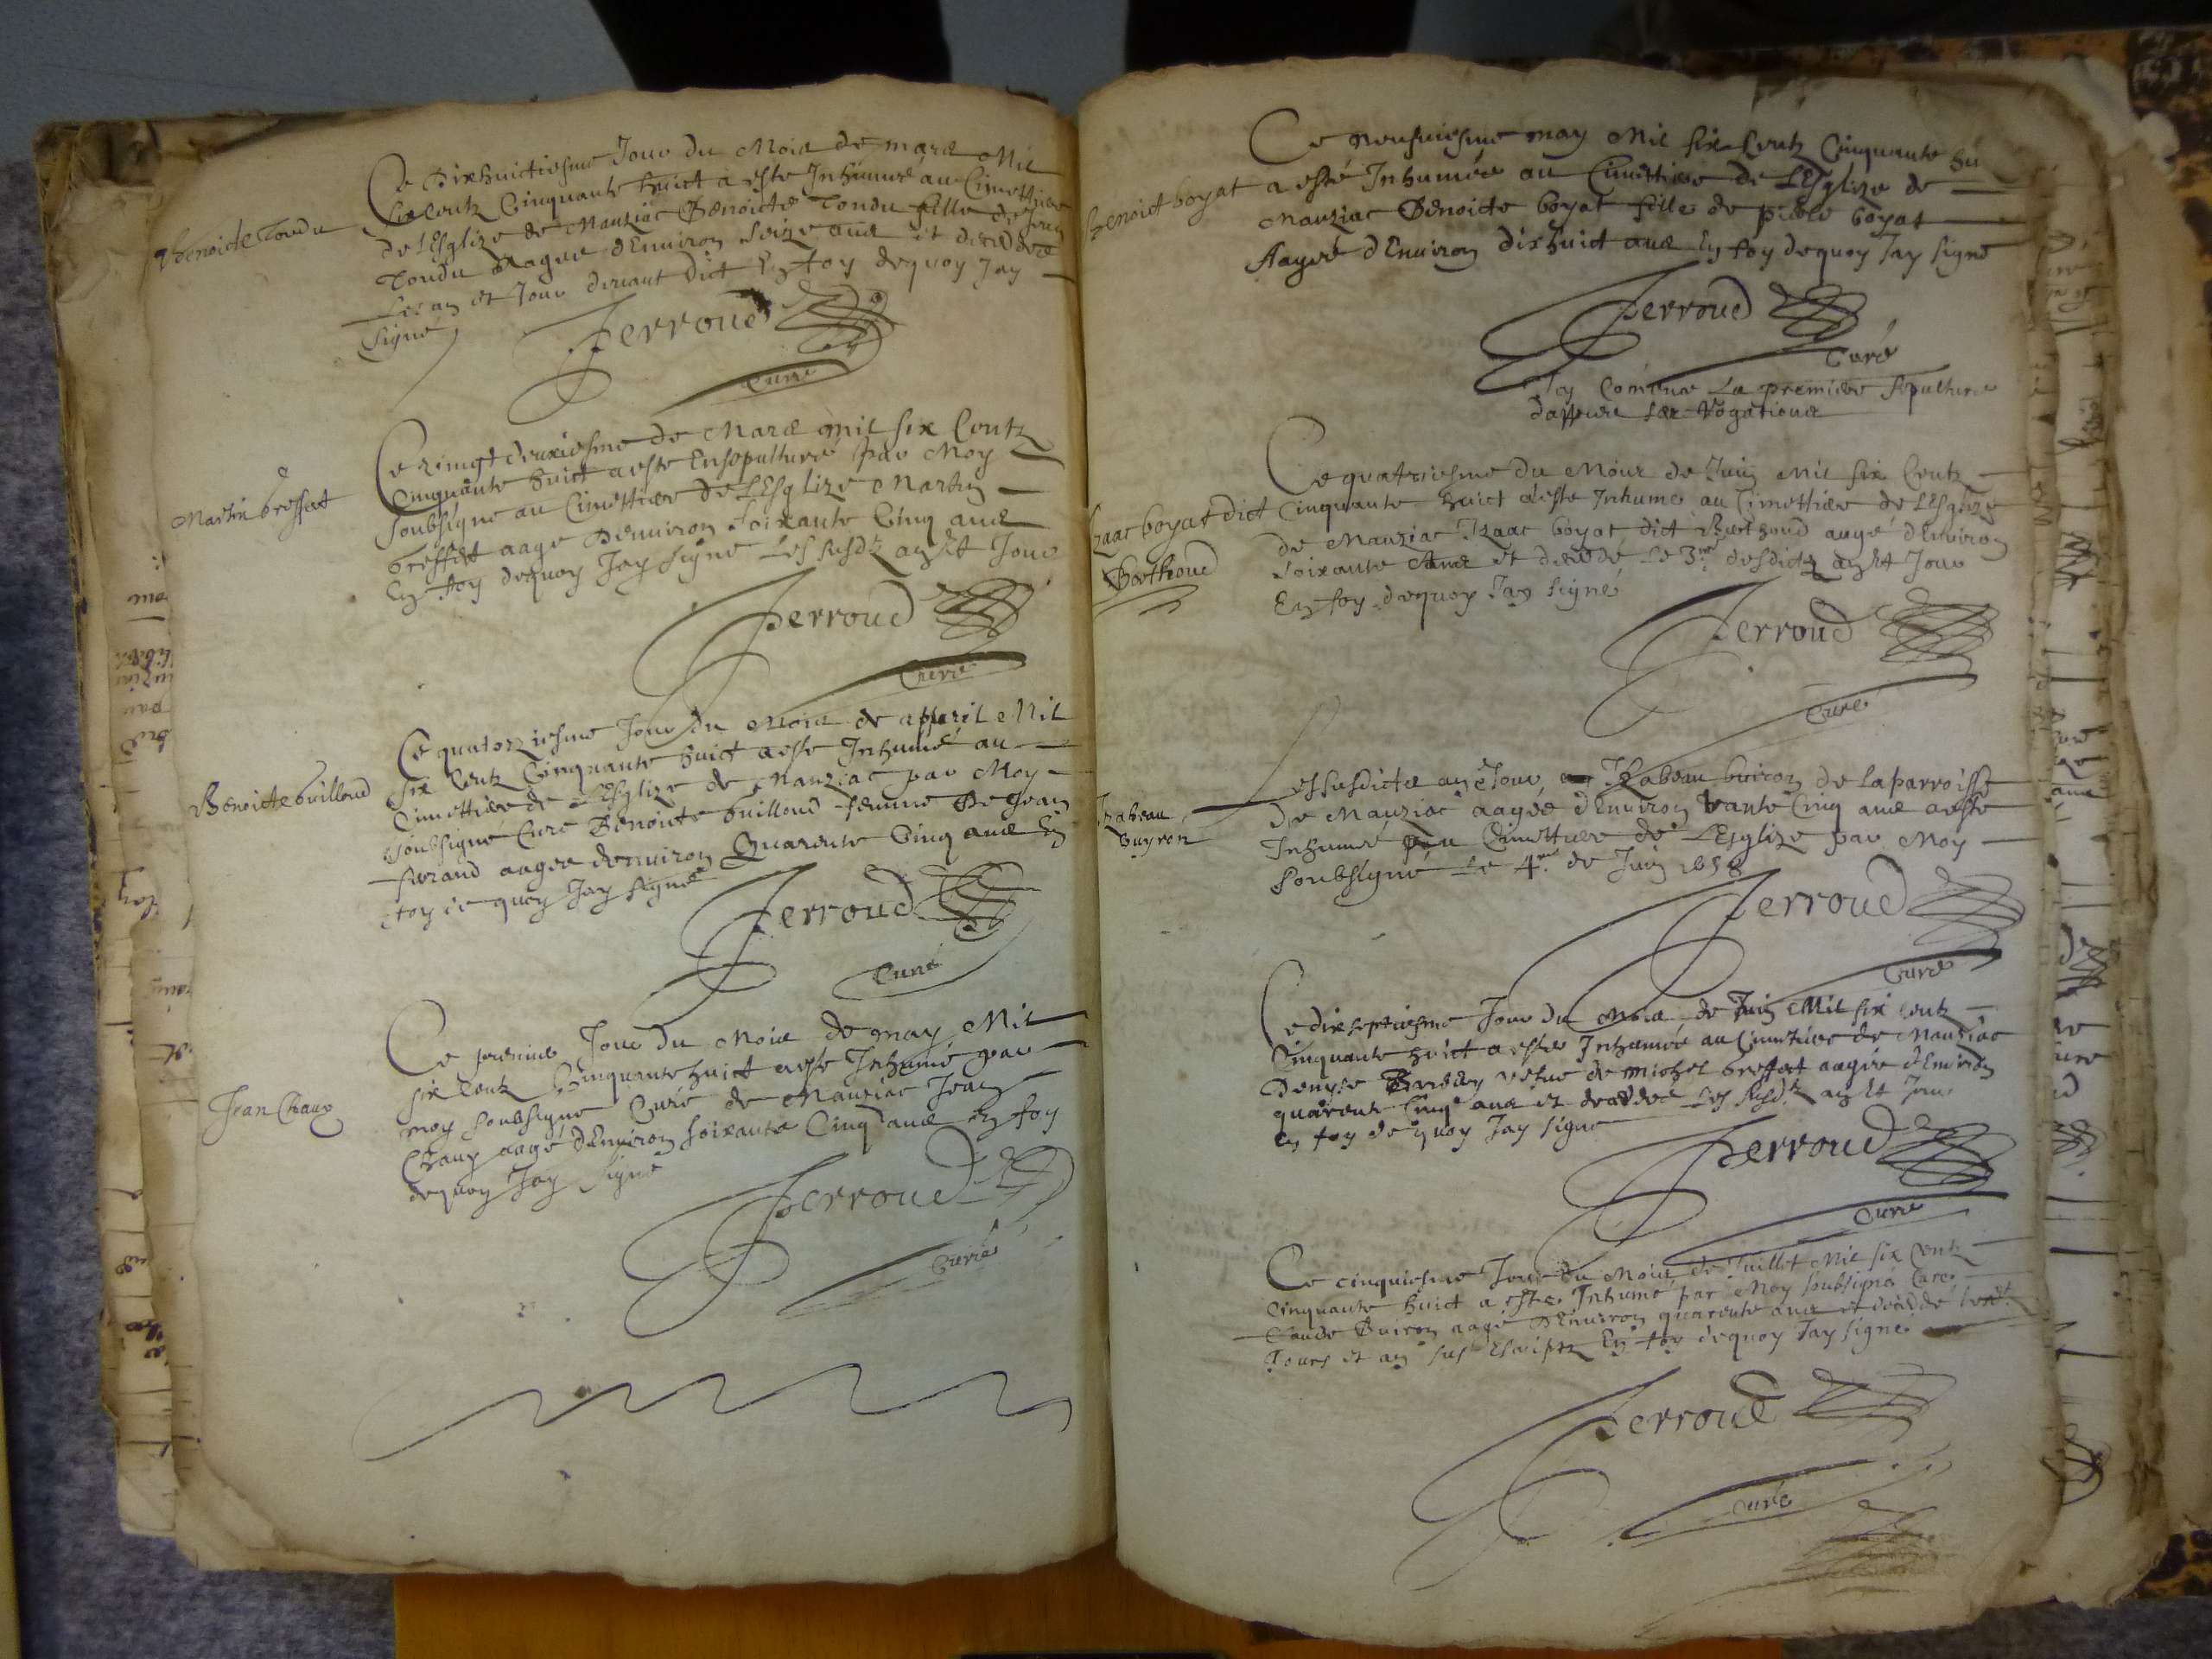 Benoicte Tondu
Ce Dixhuictiesme Jour du Mois de mars Mil
six Centz Cinquante huict a este Inhumé au Cimettiere
de l'Esglize de Manziac Benoicte Tondu fille de Jean
Tondu Aagee d'Environ Seize ans et decedde
Les an et Jour devant dict En foy dequoy Jay
Signé
Perroud
Curé
Martin breffat
Ce vingt deuxiesme de Mars mil six Centz
Cinquante huict a este Ensepulturé par Moy
Soubsigne au Cimettiere de L'Esglize Martin
breffat aagé Denviron soixante Cinq ans
En foy dequoy Jay signé Les susdz an et Jour
Perroud
Curé
Benoicte builloud
Ce quatorziesme Jour du Mois de apvril Mil
six Centz Cinquante huict a este Inhumé au
Cimettiere de L'Esglize de Manziac par Moy
soubsigne Curé Benoiste builloud femme De Jean
aagee denviron Quarente Cinq ans En
foy de quoy Jay signé
Perroud
Curé
Jean Chaux
Ce premier Jour du Mois de may Mil
six Centz Cinquante huict a este Inhumé par
moy soubsigné Curé de Manziac Jean
Chaux aagé d'Environ soixante Cinq ans En foy
dequoy Jay Signé
Perroud
Curé
Benoict boyat
Ce Neufviesme may Mil six Centz Cinquante hu
a esté Inhumée au Cimettiere de L'Esglize de
Manziac Benoicte boyat fille de boyat
Aagée d'Environ dixhuict ans En foy dequoy Jay signé
Perroud
Curé
Jay La premiere sepulture
les Rogations
Izaac boyat dict
Berthoud
Ce quatriesme du Mois de Juin Mil six Centz
Cinquante huict a este Inhumé au Cimettiere de L'Esglize
de Manziac Izaac boyat dict Berthoud aagé d'Environ
soixante ans et decedde Le 3me desdictz an et Jour
En foy dequoy Jay signé
Perroud
Curé
Izabeau
buyron
Les susdicts an et Jour Izabeau buiron de La parroisse
de Manziac aagée d'Environ trante Cinq ans a este
Inhumée au Cimettiere de L'Esglize par Moy
soubsigné Le 4me de Juin 1658
Perroud
Curé
Ce dixseptiesme Jour du Mois de Juin Mil six centz
Cinquante huict a este Inhumée au Cimetiere de Manziac
Denyse vefve de Michel breffat aagée d'Environ
quarente Cinq ans et deceddee Les susdz an et Jour
En foy de quoy Jay signé
Perroud
Curé
Ce cinquiesme Jour du Mois de Juillet Mil six Centz
Cinquante huict a este Inhumé par Moy soubsigné Curé
Claude Buiron aagé d'Environ quarente ans et decedde
Jours et an sus Escriptz En foy dequoy Jay signé
Perroud
Curé